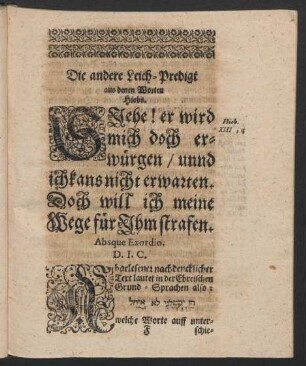 Die andere Leich-Predigt
aus denen Worten
Hiobs.
SJehe! er wird
mich doch er-
würgen / unnd
ich kans nicht erwarten.
Doch will ich meine
Wege für Ihm strafen.
Hiob.
XIII
Absque Exordio.
D. I. C.
Abgelesener nachdencklicher
Text lautet in der Ebreischen
Grund-Sprachen also:
הן יקטלני לא איחל
welche Worte auff unter-
F
schie-